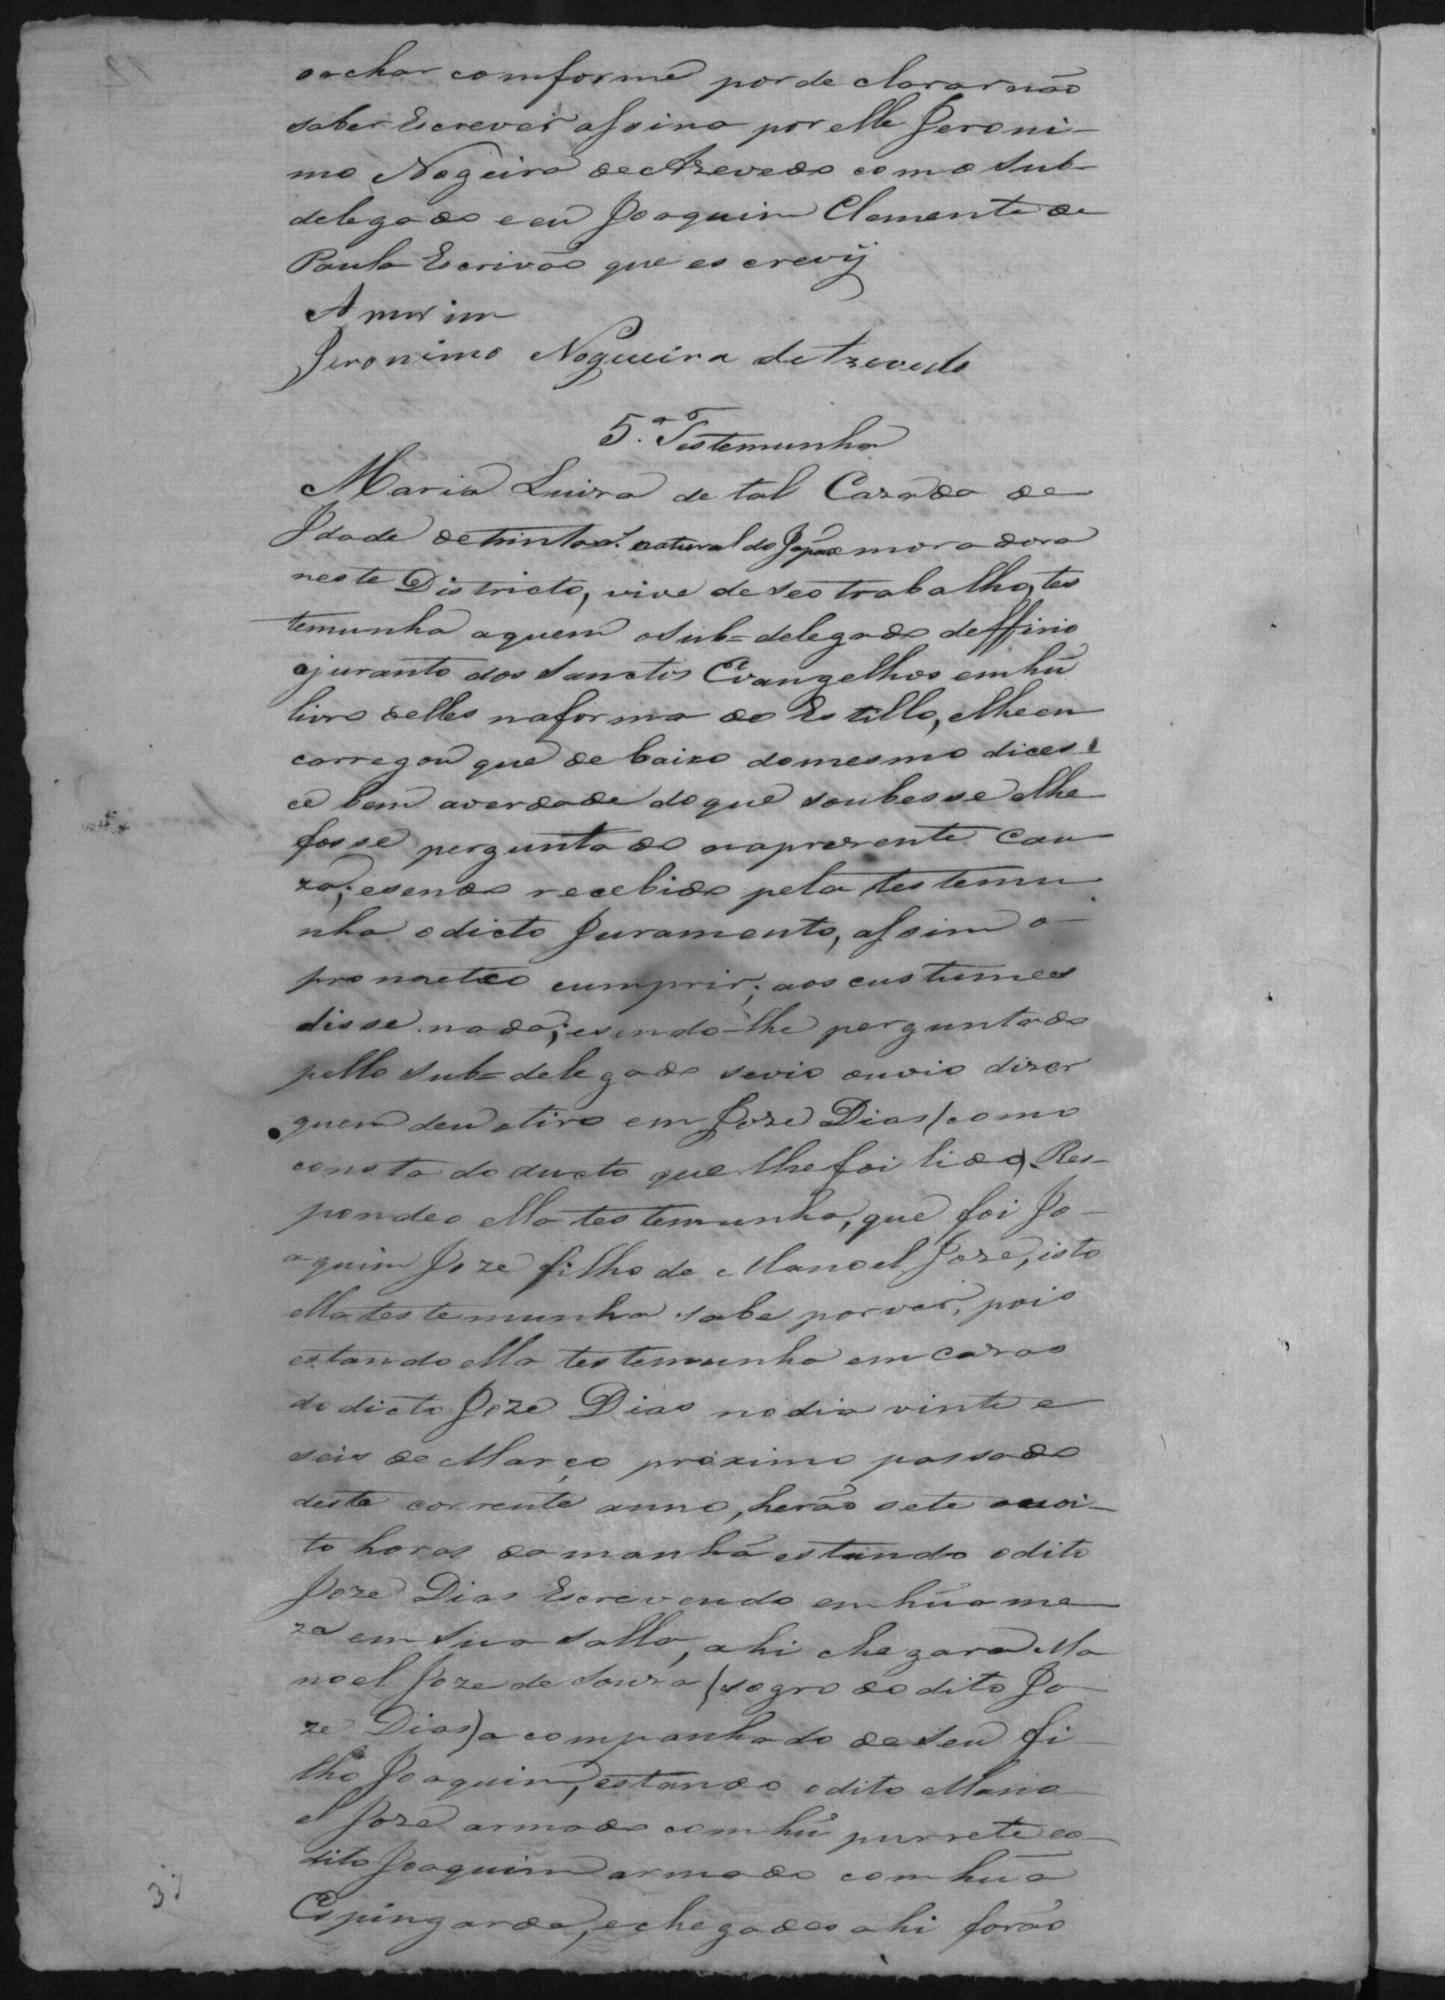 oachar comforme por de clararnão
saber Escrever assina por elle Jeroni-
mo Nogeira de Azevedo como Sub-
delegado eeu Joaquim Clemente de
Paula Escrivão que es crevÿ
Amorim
Jeronimo Nogueira de Azevedo
5.ª Testemunha
Maria Luiza de tal Cazada de
Idade de trinta natural do moradora
neste Districto, vive de seo trabalho, tes
temunha aquem oSub=delegado deffirio
ojuranto dos Sanctos Evangelhos em hũ
livro delles naforma do Estillo, elheen
carregou que de baixo domesmo dices
ce bem averdade doque soubesse elhe
fosse perguntado naprezente Cau
za; esendo recebido pela testemu
nha odicto Juramento, assim o
prometteo cumprir; aos custumes
disse nada; esendo-lhe perguntado
pello Sub=delegado sevio ouvio dizer
quem deu otiro em Joze Dias (como
consta do aucto que lhe foi lido). Res-
pondeo ella testemunha, que foi Jo-
aquim Joze filho de Manoel Joze, isto
ella testemunha sabe por ver, pois
estando ella testemunha em cazas
do dicto Joze Dias nodia vinte e
seis de Março proximo passado
deste corrente anno, herão sete ouoi-
to horas damanhã estando odito
Joze Dias Escrevendo em hũa me
za em Sua salla, ahi chegara Ma
noel Joze de Souza (sogro dodito Jo
ze Dias) acompanhado de seu fi-
lho Joaquim, estando odito Mano
el Joze armado com hũ purrete eo
dito Joaquim armado com hũa
Espingarda, echegados ahi forão
37